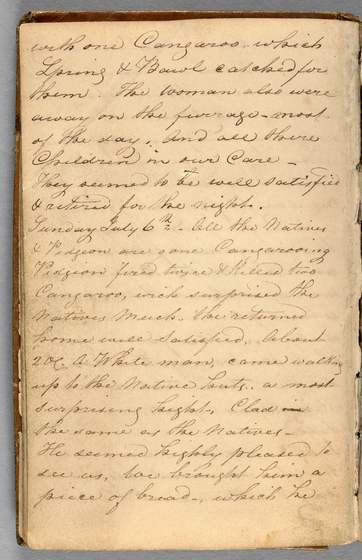 with one Cangaroo. which
Spring & Bawl catched for
them. The woman also were
away on the furrage - most
of the day. And all there
Children in our Care -
They seemed to be well satisfied
& retired for the night.
Sunday July 6th - All the Natives
& Pidgeon are gone Cangarooing
Pidgeon fired twice & killed two
Cangaroo, wich surprised the
Natives Much. the returned
home well Satisfied. About
2 oC. A White man came walking
up to the Native huts. a most
surprising hight, Clad in
the same as the Natives -
He seemed highly pleased to
see us, We brought him a
piece of bread -, which he